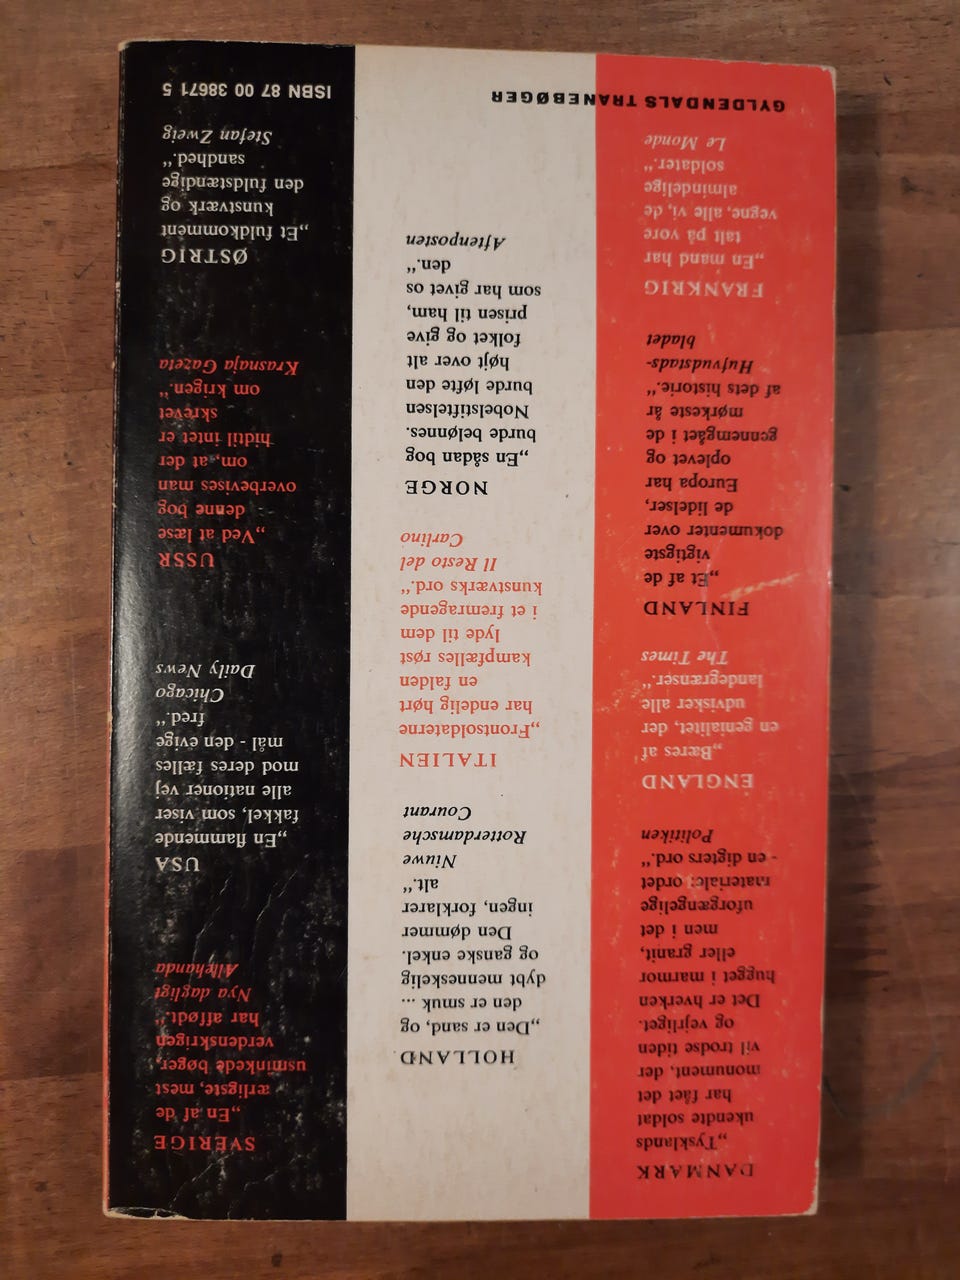 DANMARK
„Tysklands
ukendte soldat
har fået det
monument, der
vil trodse tiden
og vejrliget.
Det er hverken
hugget i marmor
eller granit,
men i det
uforgængelige
materiale: ordet
- en digters ord.“
Politiken
ENGLAND
„Bæres af
en genialitet, der
udvisker alle
landegrænser.“
The Times
FINLAND
„Et af de
vigtigste
dokumenter over
de lidelser,
Europa har
oplevet og
gennemgået i de
mørkeste år
af dets historie.“
Hufvudstads-
bladet
FRANKRIG
„En mand har
talt på vore
vegne, alle vi, de
almindelige
soldater.“
Le Monde
HOLLAND
„Den er sand, og
den er smuk ...
dybt menneskelig
og ganske enkel.
Den dømmer
ingen, forklarer
alt.“
Niuwe
Rotterdamsche
Courant
ITALIEN
„Frontsoldaterne
har endelig hørt
en falden
kampfælles røst
lyde til dem
i et fremragende
kunstværks ord.“
Il Resto del
Carlino
NORGE
„En sådan bog
burde belønnes.
Nobelstiftelsen
burde løfte den
højt over alt
folket og give
prisen til ham,
som har givet os
den.“
Aftenposten
SVERIGE
„En af de
ærligste, mest
usminkede bøger,
verdenskrigen
har affødt.“
Nya dagligt
Allehanda
USA
„En flammende
fakkel, som viser
alle nationer vej
mod deres fælles
mål - den evige
fred.“
Chicago
Daily News
USSR
„Ved at læse
denne bog
overbevises man
om, at der
hidtil intet er
skrevet
om krigen.“
Krasnaja Gazeta
ØSTRIG
„Et fuldkomment
kunstværk og
den fuldstændige
sandhed.“
Stefan Zweig
GYLDENDALS TRANEBØGER
ISBN 87 00 38671 5